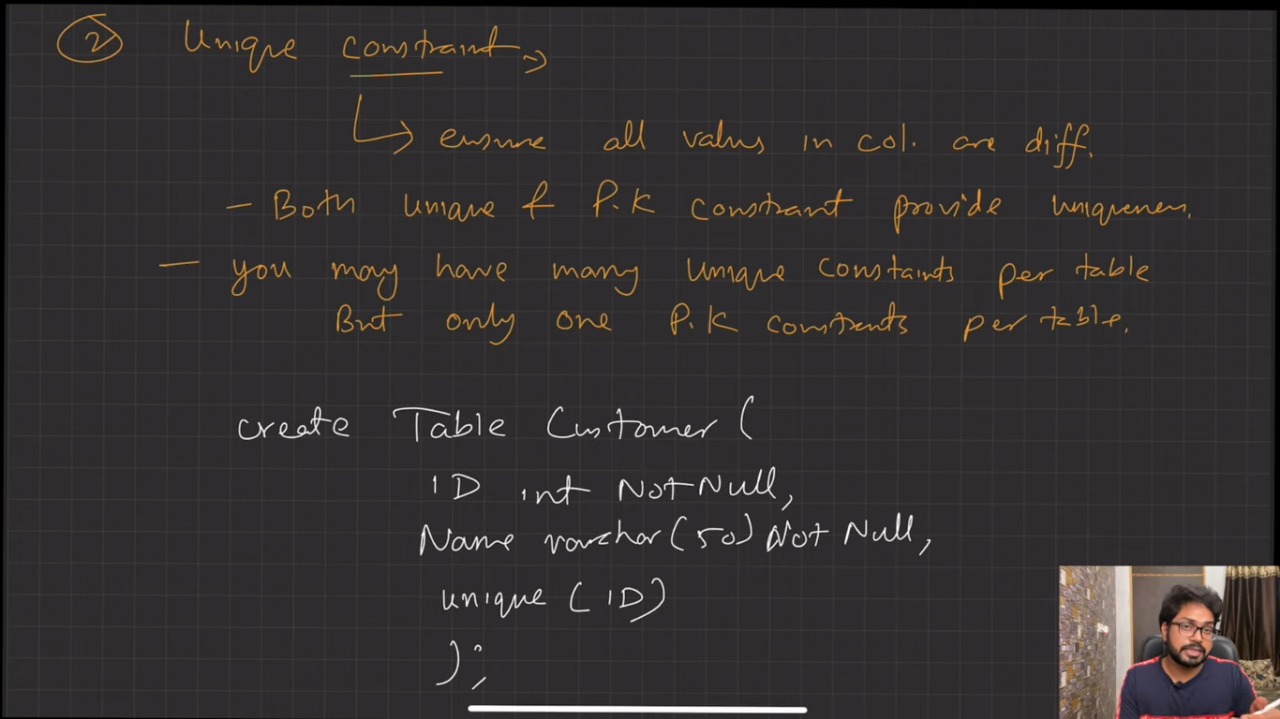 2 Unique constraint →
↳ ensure all values in col. are diff.
- Both unique & P.K constraint provide uniqueness.
- you may have many unique constaints per table
But only one P.K constraints per table.
create Table Customer (
ID int Not Null,
Name varchar(50) Not Null,
unique (ID)
);